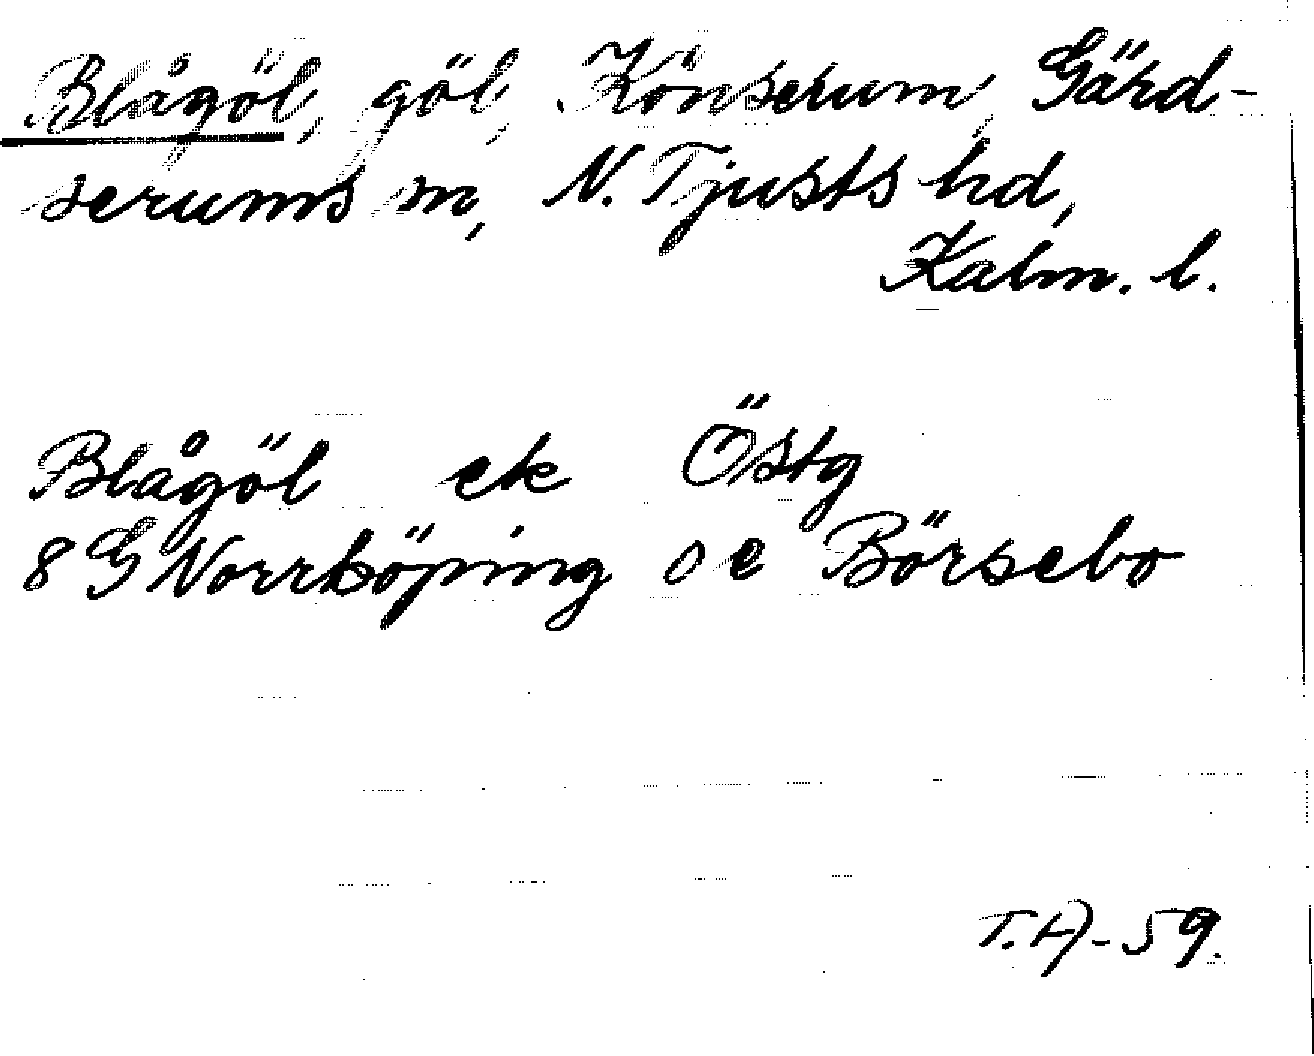 Blågöl, göl, Könserum, Gärd-
serums sn, N. Tjusts hd,
Kalm. l.
Blågöl ek Östg
8 G Norrköping oc Börsebo
T.A-59.